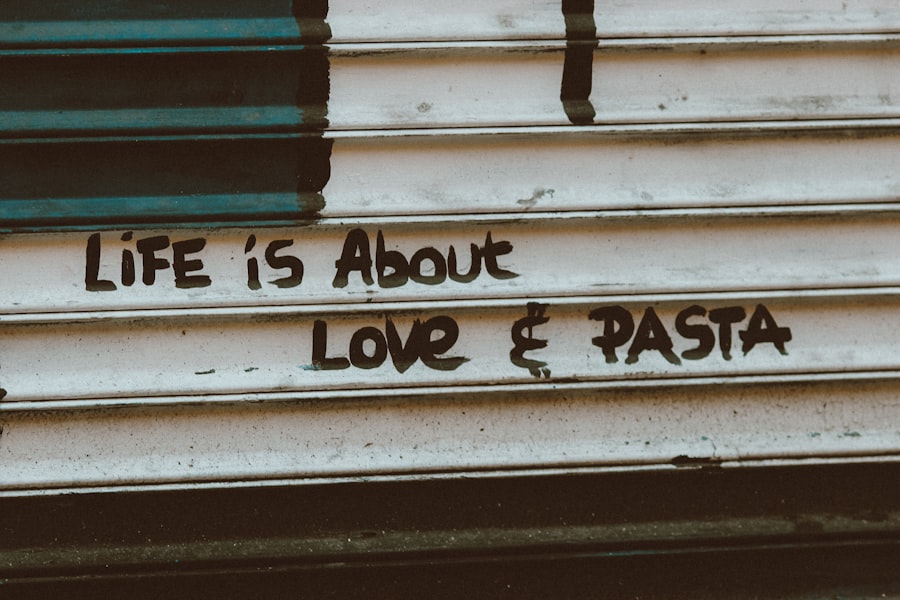 LiFE is About
LOVe & PASTA